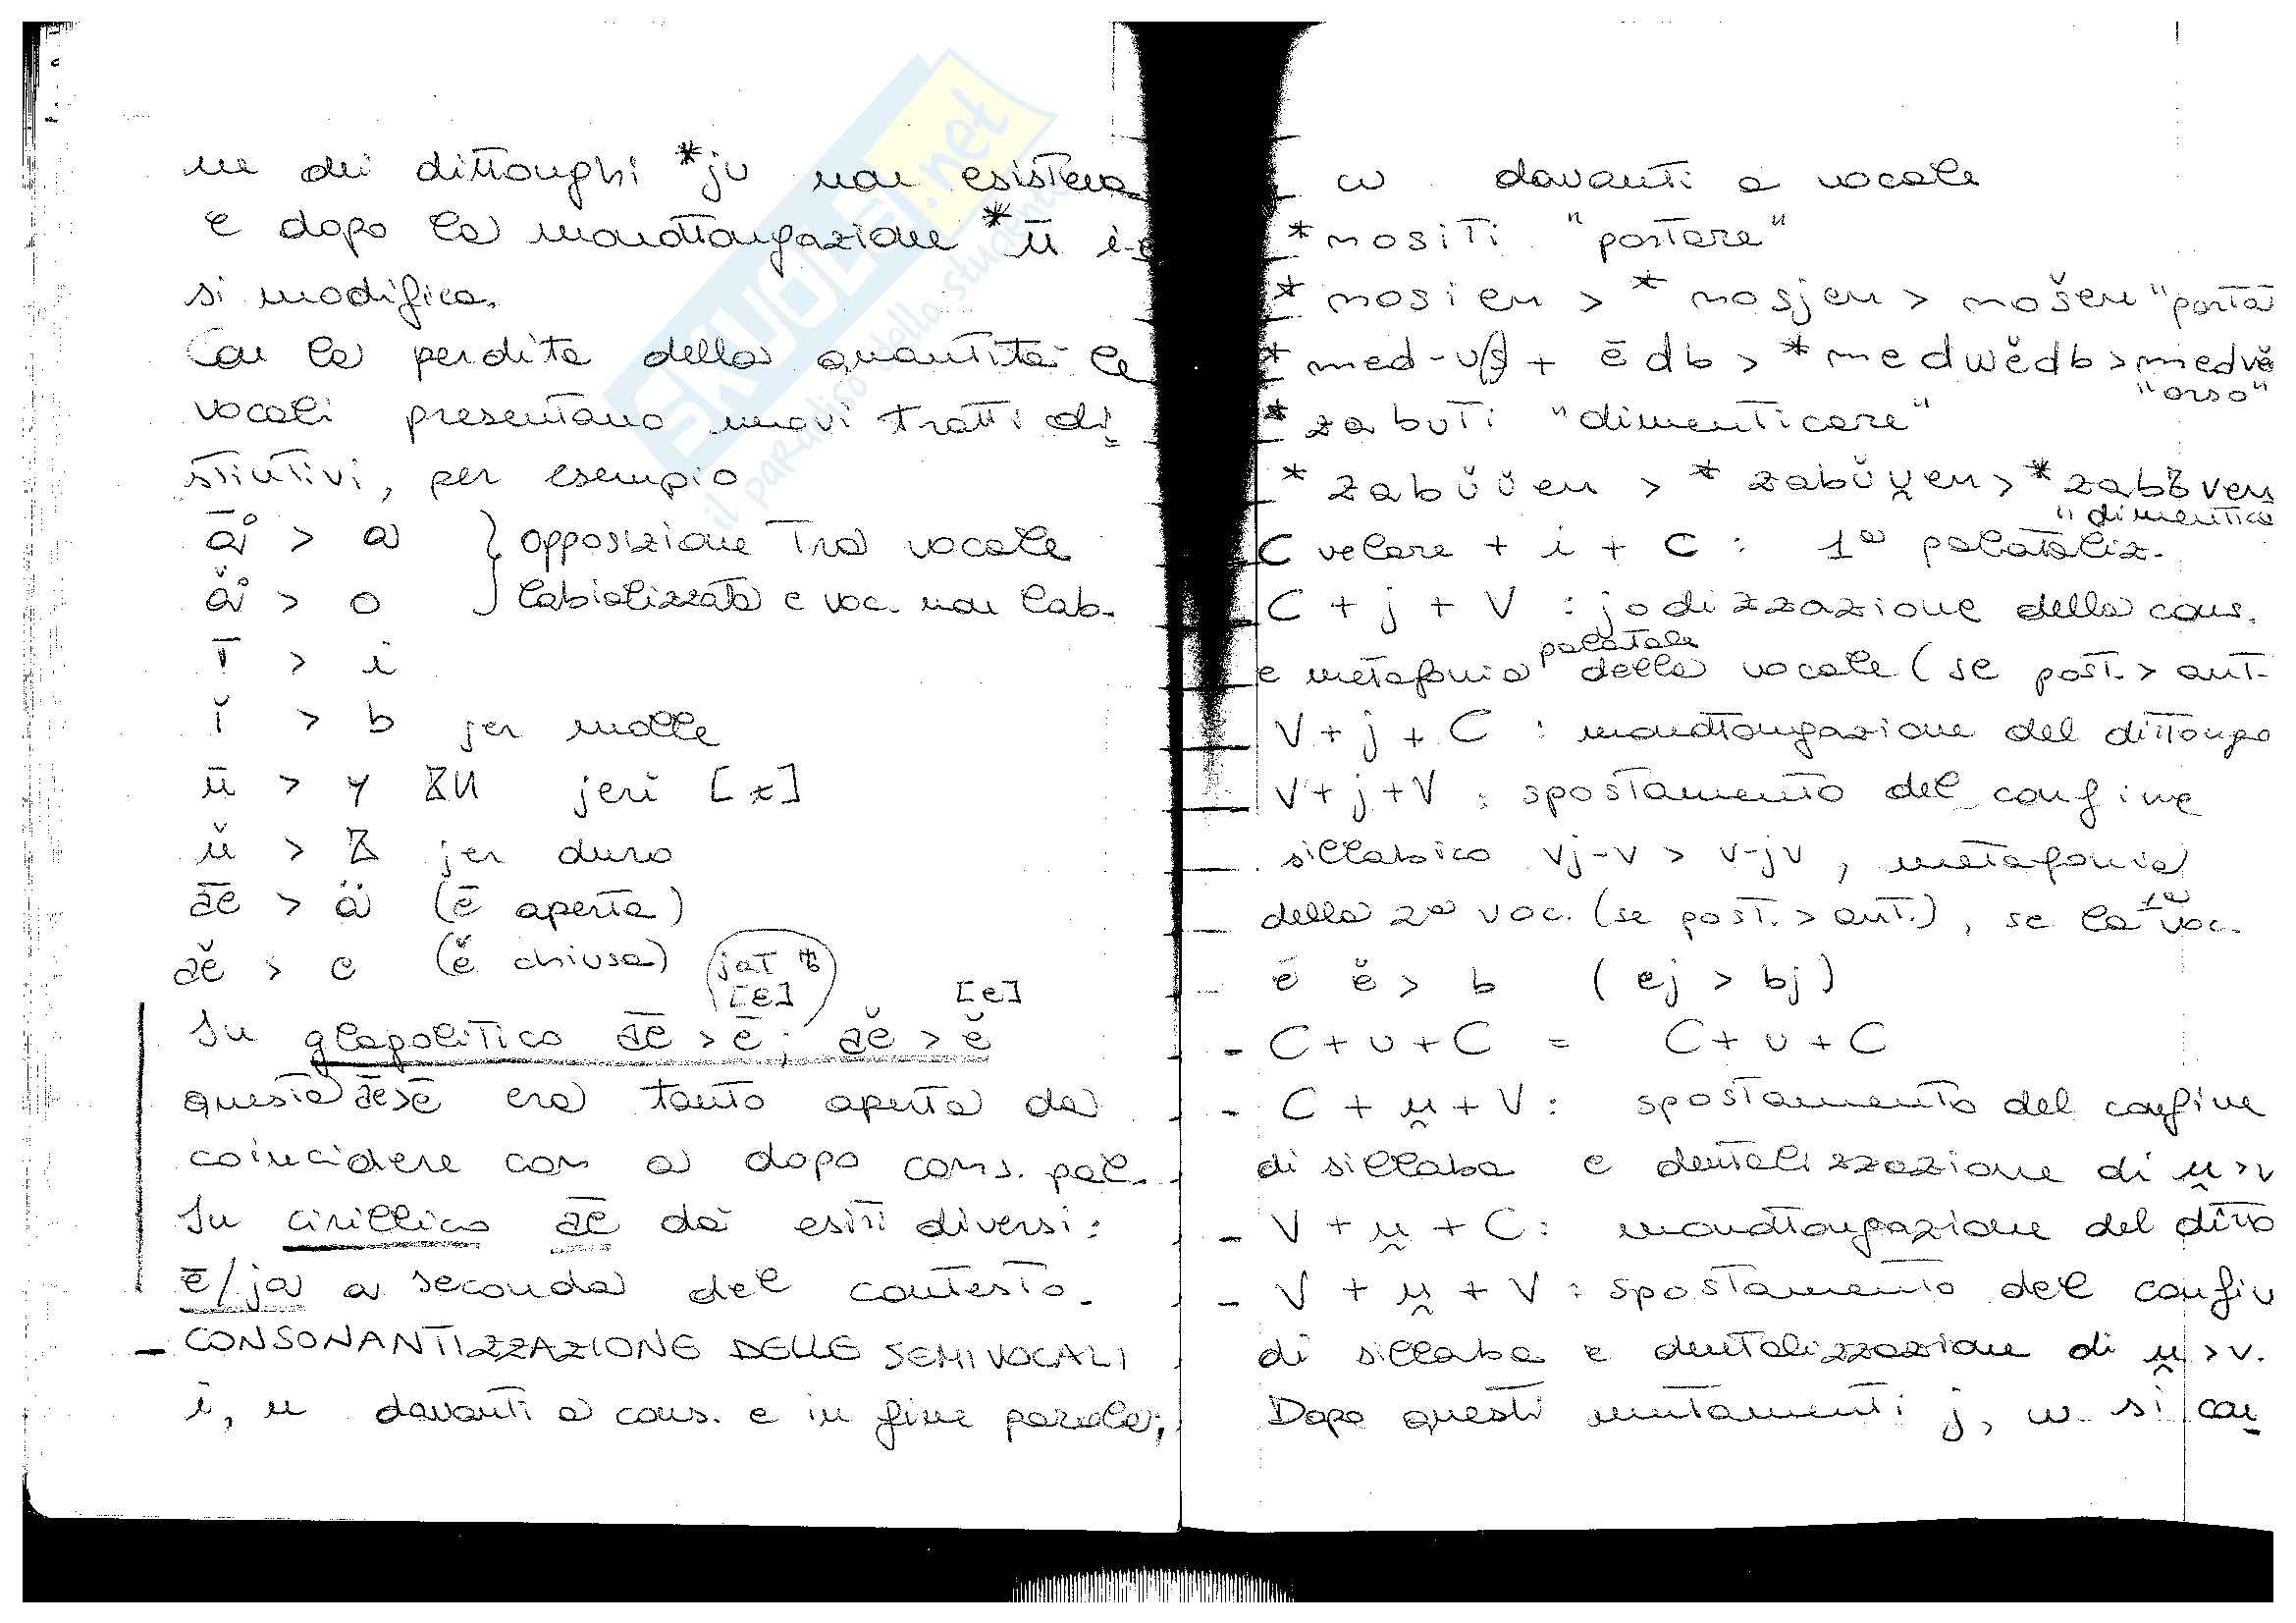 ne dei dittonghi *ju non esisteva
e dopo la monottongazione *ū
si modifica.
Con la perdita della quantità le
vocali presentano nuovi tratti di=
stintivi, per esempio
ā̊ > a } opposizione tra vocale
ă̊ > o labializzata e voc. non lab.
ī > i
ĭ > ь jer molle
ū > y ꙐИ jerì [ɨ]
ŭ > ъ jer duro
āē > ä (ē aperta)
ăĕ > e (ĕ chiusa) jat ѣ
[ε] [e]
In glagolitico āē > ē ; ăĕ > ĕ
questa āē>ē era tanto aperta da
coincidere con a dopo cons. pal.
In cirillico āē dà esiti diversi:
ē/ja a seconda del contesto.
- CONSONANTIZZAZIONE DELLE SEMIVOCALI
i, u davanti a cons. e in fine parola;
w davanti a vocale
*nositi "portare"
*nosien > *nosjen > nošen "porta
*med-u + ēdь > *medwĕdь > medvě
"orso"
*zabuti "dimenticare"
*zabŭŭen > *zabŭu̯en > *zabъven
"dimentica
C velare + i + C : 1ª palataliz.
- C + j + V : jodizzazione della cons.
palatale
e metafonia della vocale (se post. > ant.
- V + j + C : monottongazione del dittongo
- V + j + V : spostamento del confine
sillabico Vj-V > V-jV , metafonia
della 2ª voc. (se post. > ant.), se la 1ª voc.
- ē ĕ > ь (ej > ьj)
- C + u + C = C + u + C
- C + u̯ + V : spostamento del confine
di sillaba e dentalizzazione di u̯ > v
- V + u̯ + C : monottongazione del ditto
- V + u̯ + V : spostamento del confin
di sillaba e dentalizzazione di u̯ > v.
Dopo questi mutamenti j, w si con
SKUOLA.net
il paradiso dello studente